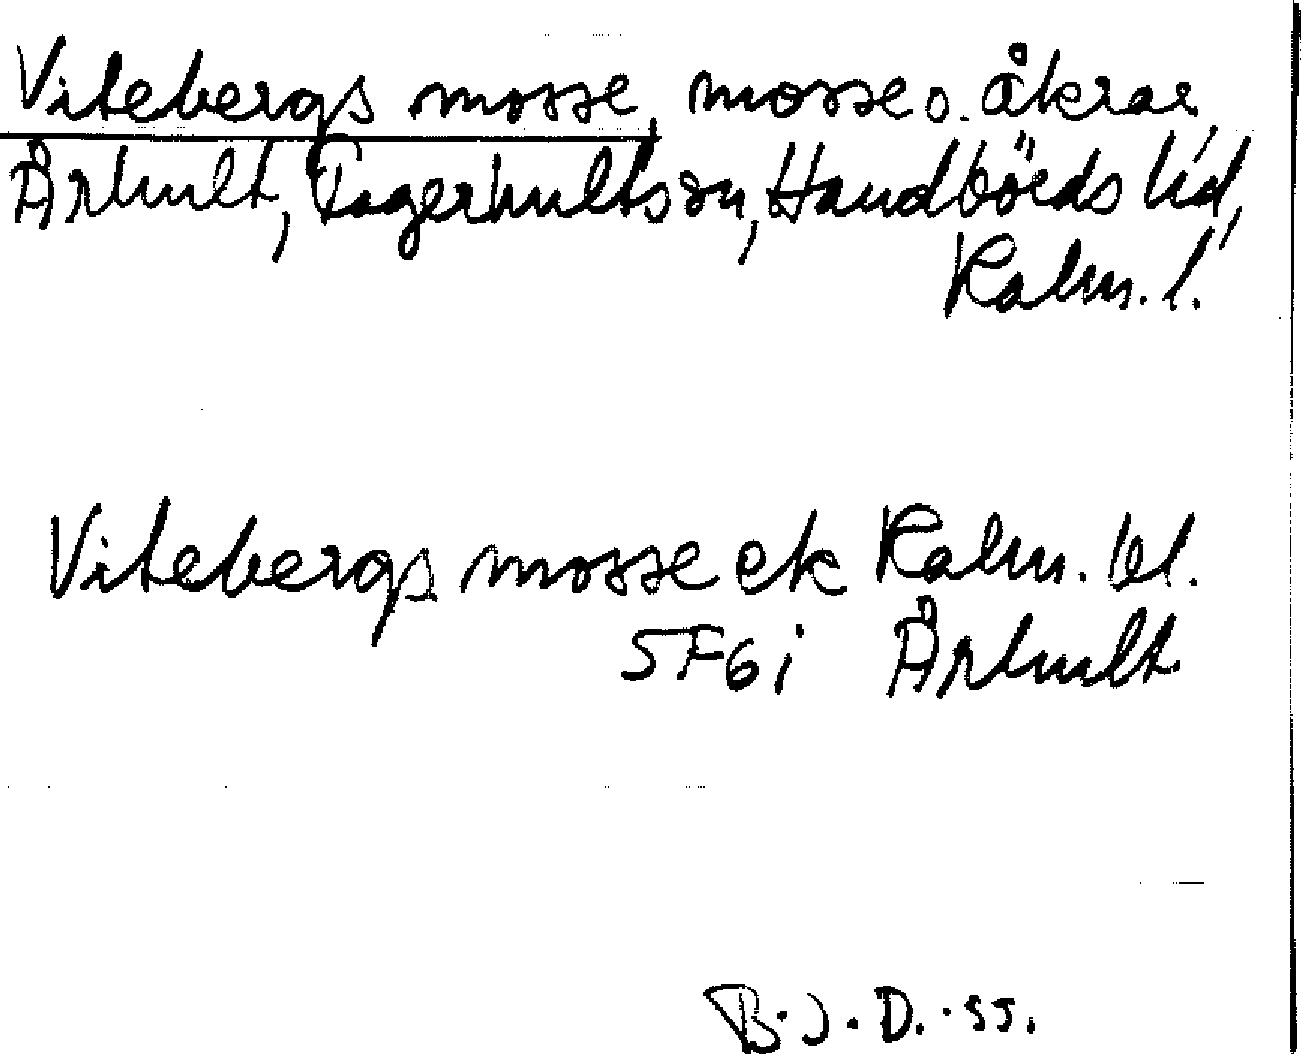 Vitebergs mosse, mosse o. åkrar
Århult, Fagerhults sn, Handbörds hd,
Kalm. l.
Vitebergs mosse ek Kalm. bl.
5F6i Århult
B.J.D. -55.